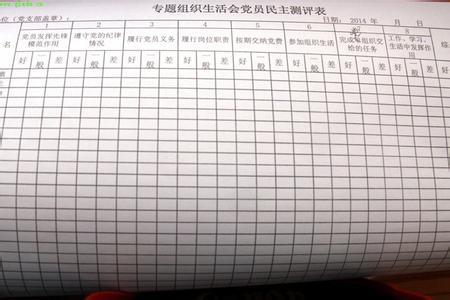 专题组织生活会党员民主测评表
位（党支部盖章）： 日期：2014 年 月 日
名 1 2 3 4 5 6 8
党员发挥先锋模范作用 遵守党的纪律情况 履行党员义务 履行岗位职责 按期交纳党费 参加组织生活 完成党组织交给的任务 工作、学习、生活中发挥作用 综
好 一般 差 好 一般 差 好 一般 差 好 一般 差 好 一般 差 好 一般 差 好 一般 差 好 一般 差 好